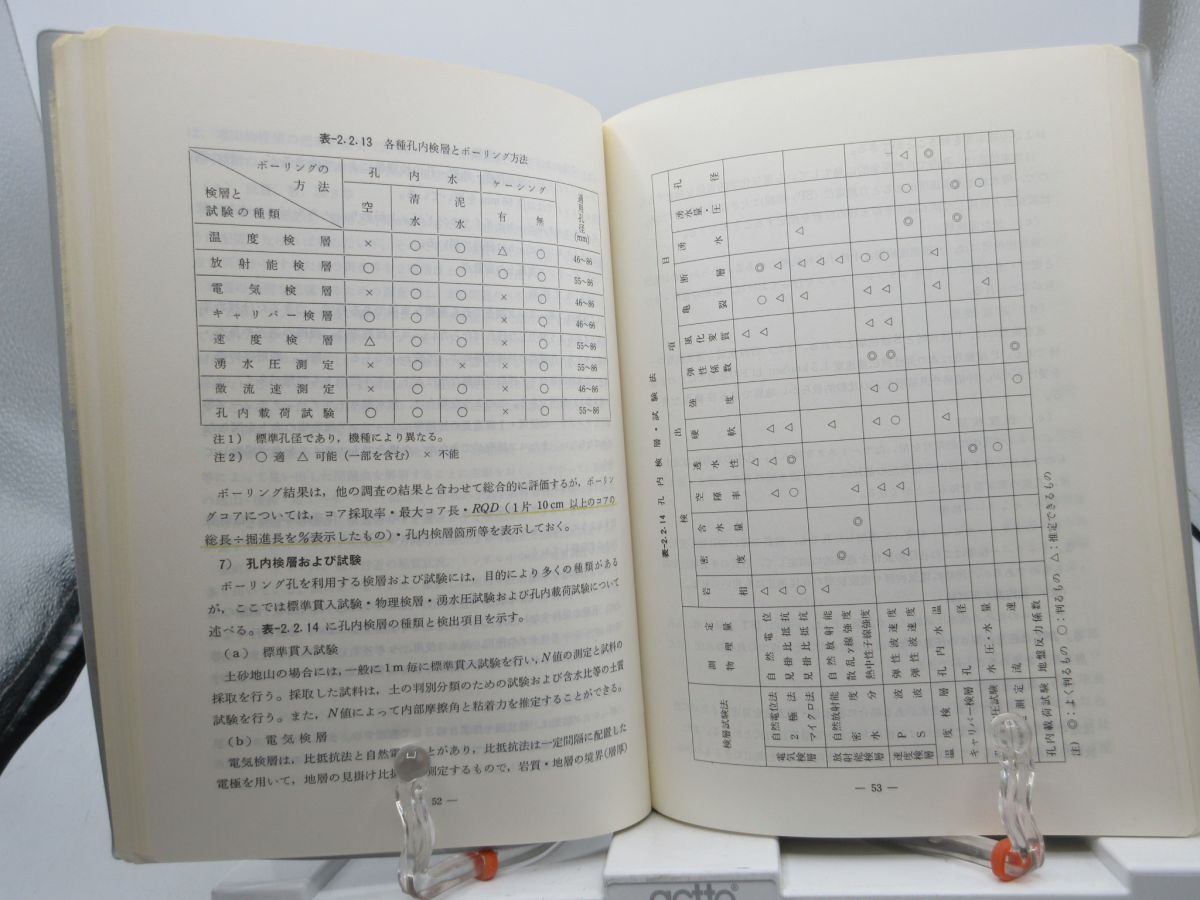 表-2.2.13 各種孔内検層とボーリング方法
ボーリングの方法 検層と試験の種類 孔内水 ケーシング 適用孔径(mm)
空 清水 泥水 有 無
温度検層 × ○ ○ △ ○ 46~86
放射能検層 ○ ○ ○ ○ ○ 55~86
電気検層 × ○ ○ × ○ 46~86
キャリパー検層 ○ ○ ○ × ○ 46~66
速度検層 △ ○ ○ × ○ 55~86
湧水圧測定 × ○ × × ○ 55~86
微流速測定 × ○ ○ × ○ 46~86
孔内載荷試験 ○ ○ ○ × ○ 55~86
注1) 標準孔径であり，機種により異なる。
注2) ○ 適 △ 可能（一部を含む） × 不能
ボーリング結果は，他の調査の結果と合わせて総合的に評価するが，ボーリン
グコアについては，コア採取率・最大コア長・RQD（1片10cm以上のコアの
総長÷掘進長を%表示したもの）・孔内検層箇所等を表示しておく。
7） 孔内検層および試験
ボーリング孔を利用する検層および試験には，目的により多くの種類がある
が，ここでは標準貫入試験・物理検層・湧水圧試験および孔内載荷試験について
述べる。表-2.2.14に孔内検層の種類と検出項目を示す。
(a) 標準貫入試験
土砂地山の場合には，一般に1m毎に標準貫入試験を行い，N値の測定と試料の
採取を行う。採取した試料は，土の判別分類のための試験および含水比等の土質
試験を行う。また，N値によって内部摩擦角と粘着力を推定することができる。
(b) 電気検層
電気検層は，比抵抗法と自然電 とがあり，比抵抗法は一定間隔に配置した
電極を用いて，地層の見掛け比抵 測定するもので，岩質・地層の境界（層厚）
52 —
表-2.2.14 孔内検層・試験法
検層試験法 測定物理量 検出項目
岩相 密度 含水量 空隙率 透水性 硬軟 強度 弾性係数 風化変質 亀裂 断層 湧水 湧水量・圧 孔径
電気検層 自然電位法 自然電位
2極法 見掛比抵抗
マイクロ法 見掛比抵抗
放射能検層 自然放射能 自然放射能
密度 散乱γ線強度
水分 熱中性子線強度
速度検層 P波 弾性波速度
S波 弾性波速度
温度検層 孔内水温
キャリパー検層 孔径
圧試験 水圧・水量
測定 流速
孔内載荷試験 地盤反力係数
注) ◎：よく判るもの ○：判るもの △：推定できるもの
— 53 —
actto